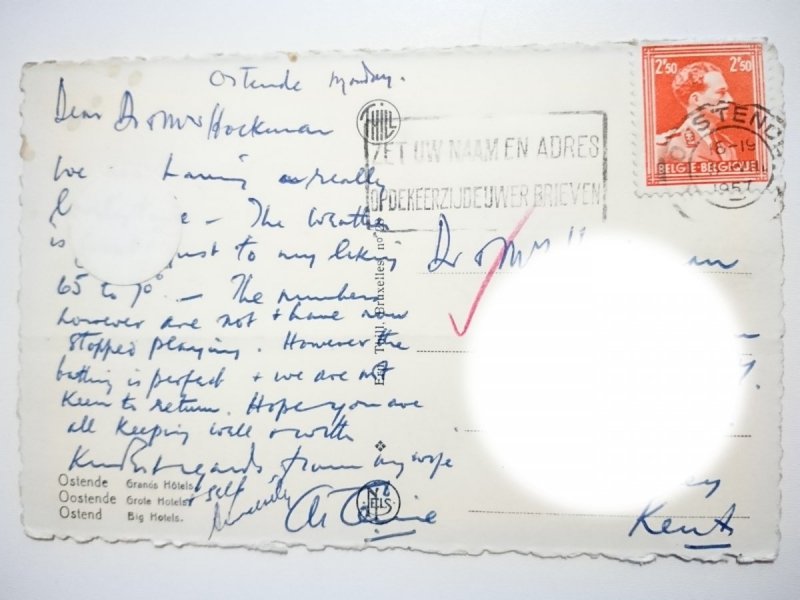 Ostende Monday.
Dear Dr & Mrs Hockman
We having a really
The Weather
is just to my liking
65 to 70° — The numbers
however are not & have now
stopped playing. However the
bathing is perfect & we are not
keen to return. Hope you are
all keeping well & with
Kindest regards from my wife
& self
Sincerely
THILL
ZET UW NAAM EN ADRES
OP DE KEERZIJDE UWER BRIEVEN
2F50 2F50
BELGIE-BELGIQUE
OOSTENDE
8-19
1957
Dr & Mrs
Kent
Ern. Thill, Bruxelles, no
NELS
Ostende Grands Hôtels.
Oostende Grote Hotels.
Ostend Big Hotels.